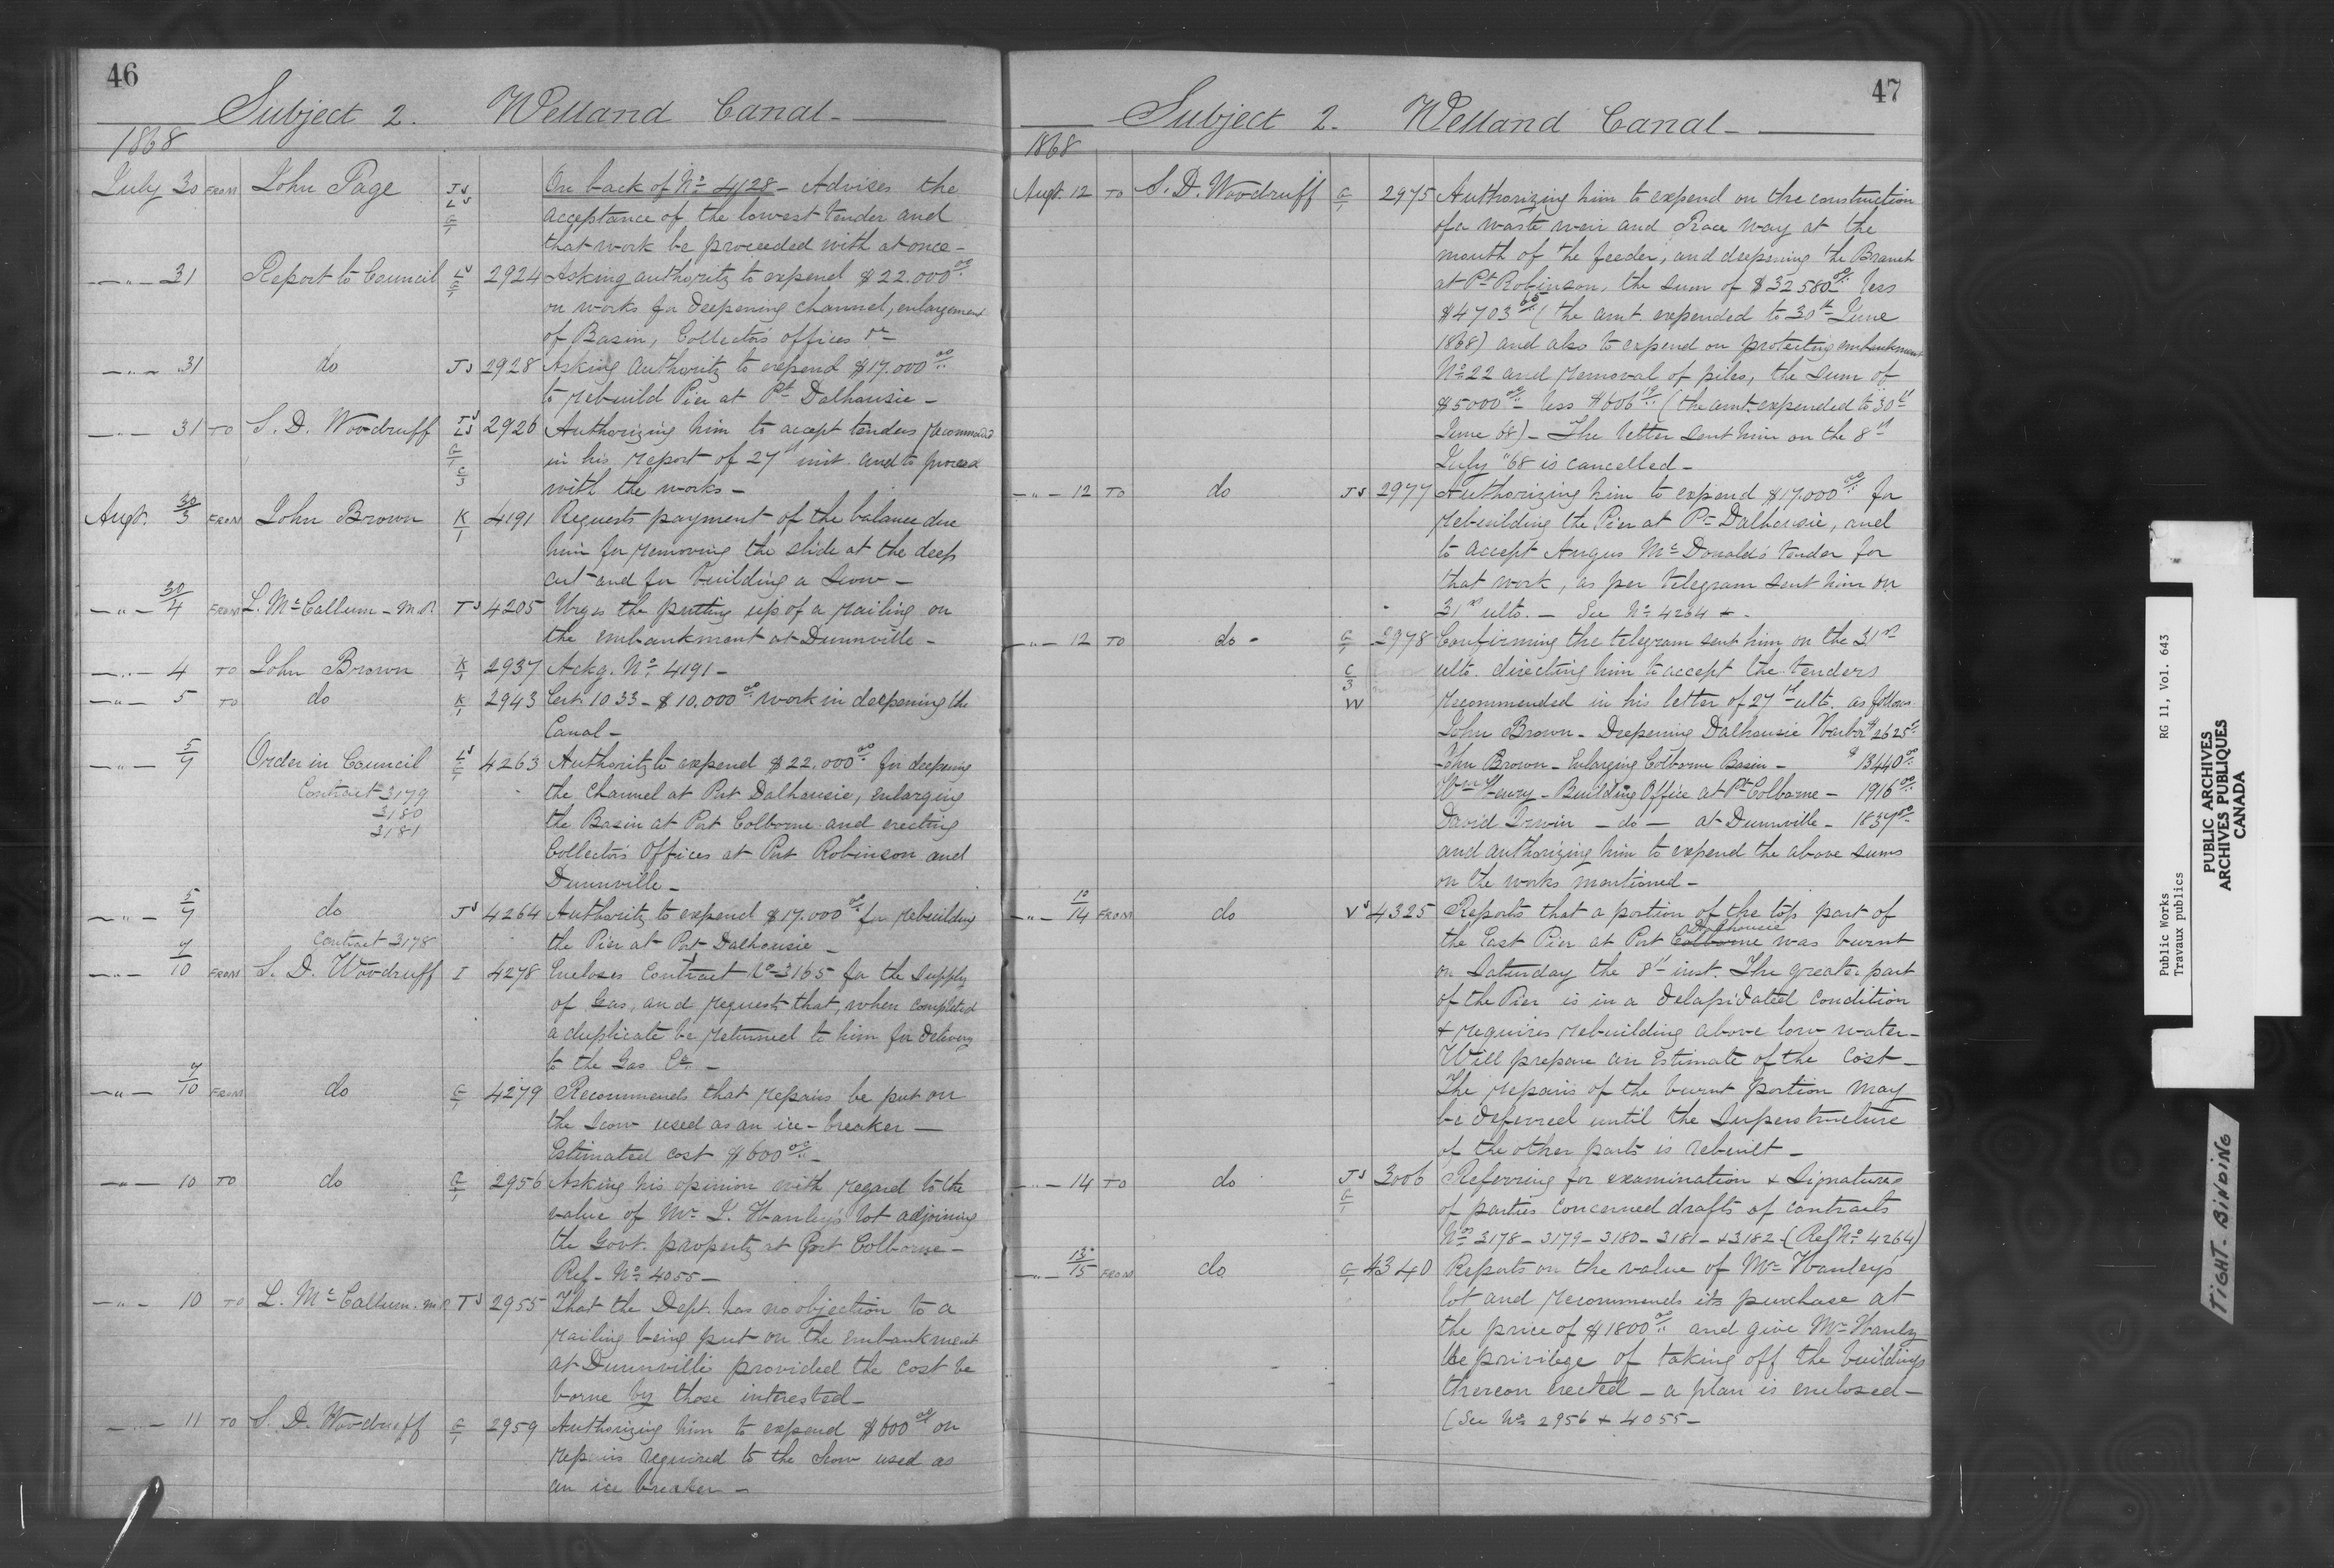 46
Subject 2. Welland Canal
1868
July 30 FROM John Page JS LS G/1 On back of No 4128 - Advises the
acceptance of the lowest tender and
that work be proceeded with at once -
" 31 Report to Council LS G/1 2924 Asking authority to expend $22.000 00
on works for deepening channel, enlargement
of Basin, Collector's offices &c
" 31 do JS 2928 Asking authority to expend $17.000 00
to rebuild Pier at Pt Dalhousie -
" 31 TO S. D. Woodruff LS G/1 C/3 2926 Authorizing him to accept tenders recommended
in his report of 27th inst. and to proceed
with the works -
Augt. 30/3 FROM John Brown K/1 4191 Requests payment of the balance due
him for removing the slide at the deep
cut and for building a Scow -
" 31/4 FROM L. McCallum - M.P. TS 4205 Urges the putting up of a railing on
the embankment at Dunnville -
" 4 TO John Brown K/1 2937 Ackg. No 4191 -
" 5 TO do K/1 2943 Cert. 1033 - $10.000 00 work in deepening the
Canal -
" 5/7 Order in Council LS G/1 4263 Authority to expend $22.000 00 for deepening
Contract 3179 the Channel at Port Dalhousie, enlarging
3180 the Basin at Port Colborne and erecting
3181 Collector's Offices at Port Robinson and
Dunnville -
" 5/7 do JS 4264 Authority to expend $17.000 00 for rebuilding
Contract 3178 the Pier at Port Dalhousie -
" 7/10 FROM S. D. Woodruff I 4278 Encloses Contract No 3165 for the supply
of Gas, and requests that, when completed
a duplicate be returned to him for delivery
to the Gas Co. -
" 7/10 FROM do G/1 4279 Recommends that repairs be put on
the Scow used as an ice-breaker -
Estimated cost $600 00 -
" 10 TO do G/1 2956 Asking his opinion with regard to the
value of Mr L. Hanley's lot adjoining
the Govt. property at Port Colborne -
Ref - No 4055 -
" 10 TO L. McCallum. M.P. TS 2955 That the Dept. has no objection to a
railing being put on the embankment
at Dunnville provided the cost be
borne by those interested -
" 11 TO S. D. Woodruff G/1 2959 Authorizing him to expend $600 00 on
repairs required to the Scow used as
an ice breaker -
47
Subject 2. Welland Canal
1868
Augt. 12 TO S. D. Woodruff G/1 2975 Authorizing him to expend on the construction
of a waste weir and Race way at the
mouth of the feeder, and deepening the Branch
at Pt Robinson, the sum of $32580 00 less
$4703 65 (the amt. expended to 30th June
1868) and also to expend on protecting embankment
No 22 and removal of piles, the sum of
$5000 00 - less $606 19 (the amt. expended to 30th
June 68) - The letter sent him on the 8th
July "68 is cancelled -
" 12 TO do JS 2977 Authorizing him to expend $17.000 00 for
rebuilding the Pier at Pt Dalhousie, and
to accept Angus McDonald's tender for
that work, as per telegram sent him on
31st ulto. - See No 4264 + -
" 12 TO do G/1 2978 Confirming the telegram sent him on the 31st
C/3 ulto. directing him to accept the tenders
W recommended in his letter of 27th ulto. as follows
John Brown - Deepening Dalhousie Harbor $2625
John Brown - Enlarging Colborne Basin - $13440 00
Wm Henry - Building Office at Pt Colborne - 1916 00
David Irwin - do - at Dunnville - 1837 00
and authorizing him to expend the above sums
on the works mentioned -
" 12/14 FROM do VS 4325 Reports that a portion of the top part of
Dalhousie
the East Pier at Port Colborne was burnt
on Saturday the 8th inst. The greater part
of the Pier is in a delapidated condition
& requires rebuilding above low water -
Will prepare an Estimate of the Cost -
The repairs of the burnt portion may
be deferred until the Superstructure
of the other parts is rebuilt -
" 14 TO do JS G/1 3006 Referring for examination & Signatures
of parties concerned drafts of contracts
Nos 3178 - 3179 - 3180 - 3181 - & 3182 (Ref No 4264)
" 13/15 FROM do G/1 4340 Reports on the value of Mr Hanley's
lot and recommends its purchase at
the price of $1800 00 and give Mr Hanley
the privilege of taking off the buildings
thereon erected - a plan is enclosed -
(See No 2956 & 4055 -
Public Works RG 11, Vol. 643
Travaux publics
PUBLIC ARCHIVES
ARCHIVES PUBLIQUES
CANADA
TIGHT BINDING